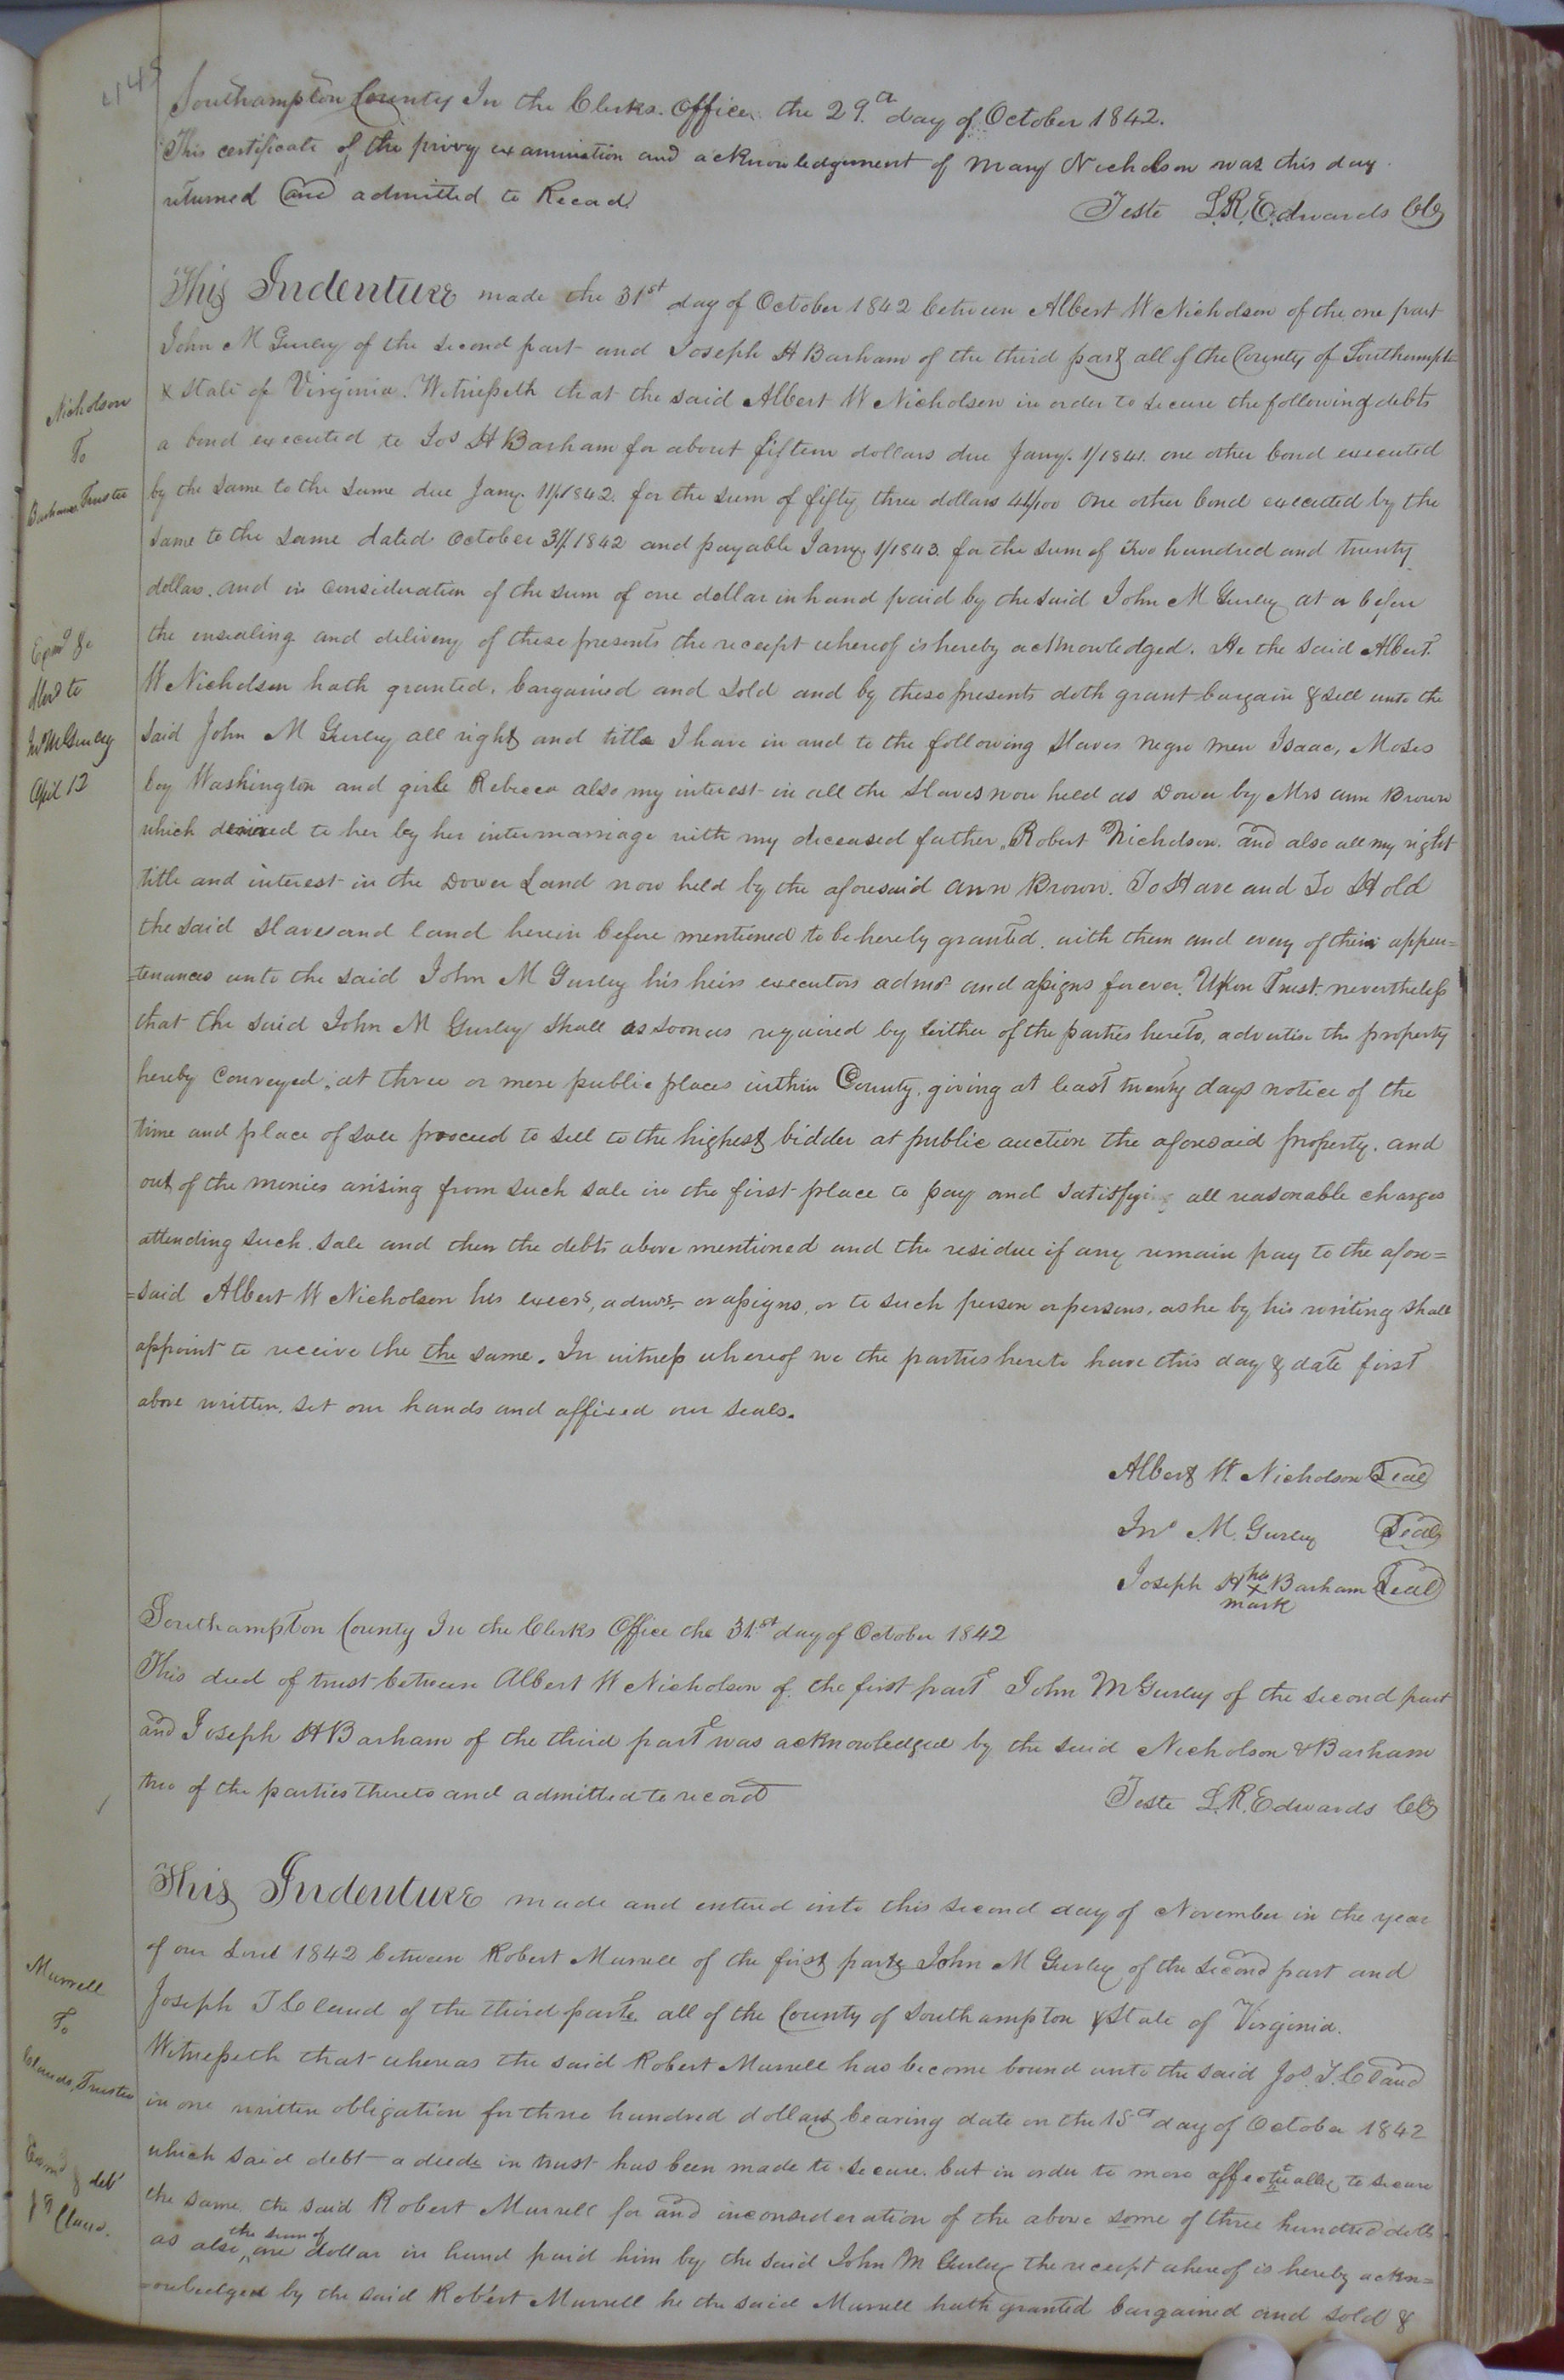 Southampton County In the Clerks Office the 29th day of October 1842.
This certificate of the privy examination and acknowledgement of Mary Nicholson was this day
returned and admitted to Record.
Teste L.R. Edwards Clk
This Indenture made the 31st day of October 1842 between Albert W Nicholson of the one part
John M Gurley of the second part and Joseph H Barham of the third part all of the County of Southampton
& State of Virginia. Witnesseth that the said Albert W Nicholson in order to secure the following debts
a bond executed to Jos H Barham for about fifteen dollars due Jany. 1/1841. one other bond executed
by the same to the same due Jany. 1/1842. for the sum of fifty three dollars 41/100 one other bond executed by the
same to the same dated October 31/1842 and payable Jany. 1/1843. for the sum of two hundred and twenty
dollars. and in consideration of the sum of one dollar in hand paid by the said John M Gurley at or before
the ensealing and delivery of these presents the receipt whereof is hereby acknowledged. He the said Albert
W Nicholson hath granted, bargained and sold and by these presents doth grant bargain & sell unto the
said John M Gurley all right and title I have in and to the following slaves negro men Isaac, Moses
boy Washington and girle Rebecca also my interest in all the slaves now held as Dower by Mrs Ann Brown
which derived to her by her intermarriage with my deceased father, Robert Nicholson. and also all my right
title and interest in the Dower Land now held by the aforesaid Ann Brown. To Have and To Hold
the said slaves and land herein before mentioned to be hereby granted, with them and every of their appur=
=tenances unto the said John M Gurley his heirs executors admrs and assigns forever. Upon Trust nevertheless
that the said John M Gurley shall as soon as required by either of the parties hereto, advertise the property
hereby conveyed, at three or more public places within County, giving at least twenty days notice of the
time and place of sale proceed to sell to the highest bidder at public auction the aforesaid property. and
out of the monies arising from such sale in the first place to pay and satisfy all reasonable charges
attending such sale and then the debts above mentioned and the residue if any remain pay to the afore=
=said Albert W Nicholson his execrs, admrs or assigns, or to such person or persons, as he by his writing shall
appoint to receive the the same. In witness whereof we the parties hereto have this day & date first
above written, set our hands and affixed our seals.
Albert W. Nicholson Seal
Jno M. Gurley Seal
Joseph H his x mark Barham Seal
Southampton County In the Clerks Office the 31st day of October 1842
This deed of trust between Albert W Nicholson of the first part John M Gurley of the second part
and Joseph H Barham of the third part was acknowledged by the said Nicholson & Barham
two of the parties thereto and admitted to record
Teste L.R. Edwards Clk
This Indenture made and entered into this second day of November in the year
of our Lord 1842 between Robert Murrell of the first party John M Gurley of the second part and
Joseph T Claud of the third part all of the County of Southampton & State of Virginia.
Witnesseth that whereas the said Robert Murrell has become bound unto the said Jos. T. Claud
in one written obligation for three hundred dollars bearing date on the 15th day of October 1842
which said debt a deed in trust has been made to secure. but in order to more affectually to secure
the same, the said Robert Murrell for and in consideration of the above some of three hundred dolls
as also the sum of one dollar in hand paid him by the said John M Gurley the receipt whereof is hereby ackn=
=owledged by the said Robert Murrell he the said Murrell hath granted bargained and sold &
Nicholson
To
Barhams Trustee
Exmd &c
Jno M Gurley
April 12
Murrell
To
Clauds, Trustee
Claud.